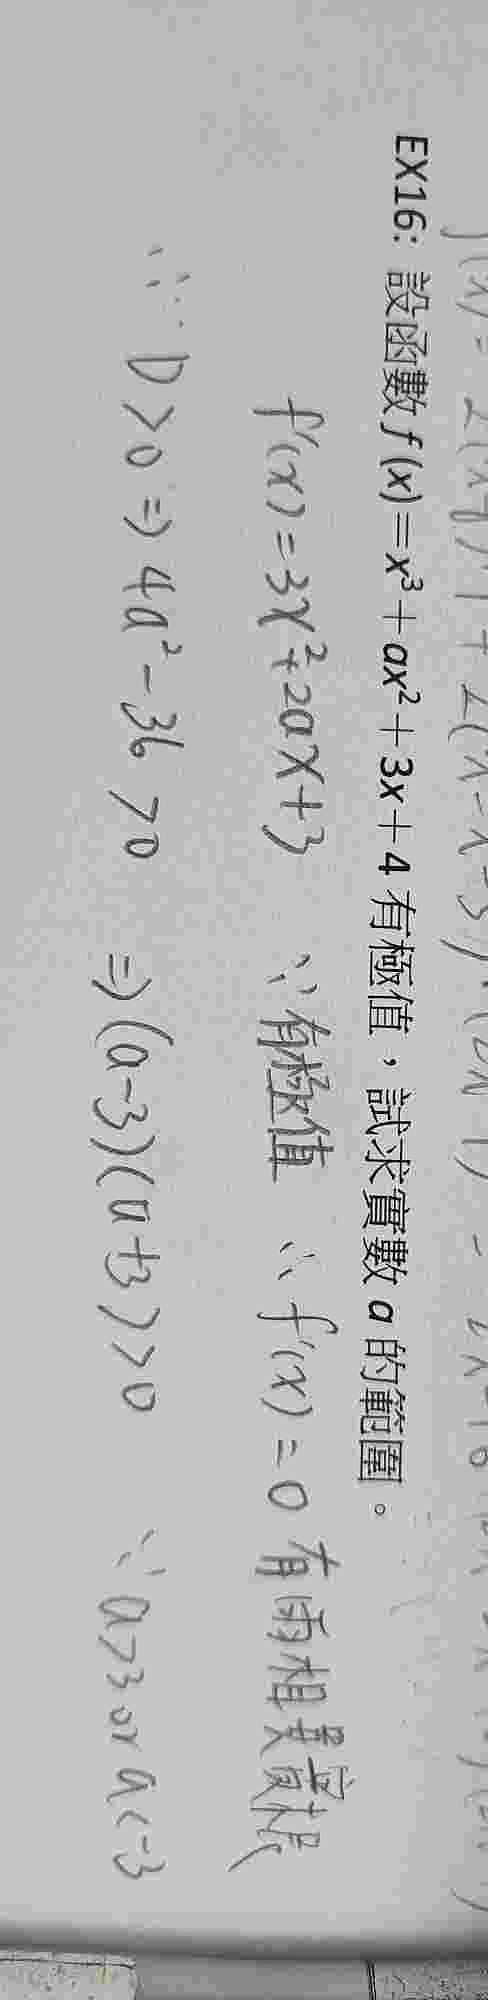 EX16: 設函數 f(x)=x³+ax²+3x+4 有極值，試求實數 a 的範圍。
f'(x)=3x²+2ax+3 ∵有極值 ∴f'(x)=0 有兩相異實根
∴D>0⇒4a²-36>0 ⇒(a-3)(a+3)>0 ∴a>3 or a<-3